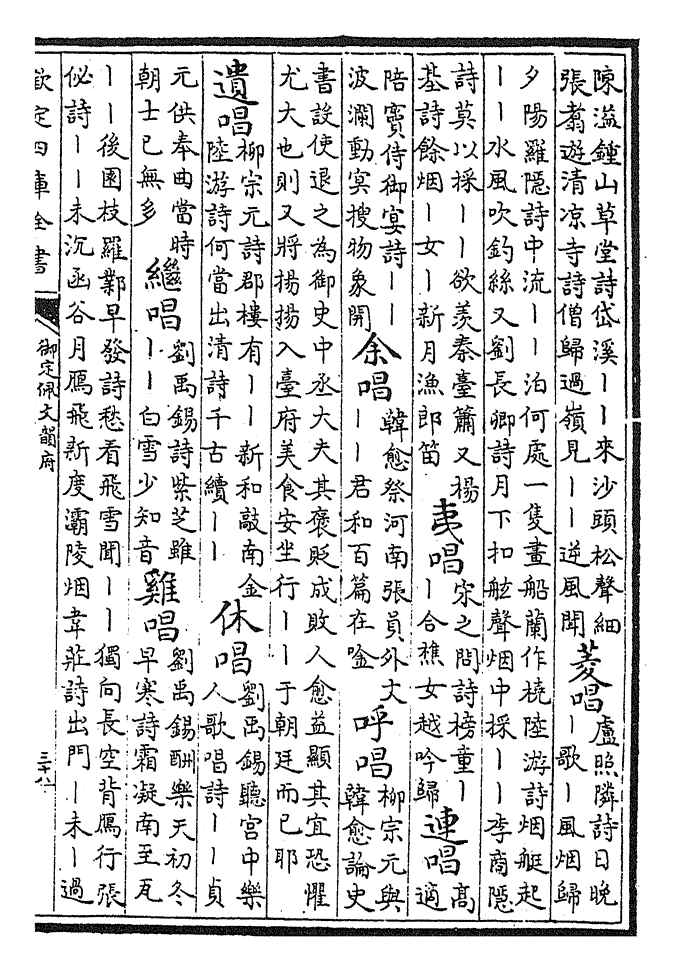 陳溢鍾山草堂詩岱溪丨丨來沙頭松聲細
張翥遊清凉寺詩僧歸過嶺見丨丨逆風聞
菱唱
盧照隣詩日晚
丨歌丨風烟歸
夕陽羅隱詩中流丨丨泊何處一隻畫船蘭作橈陸游詩烟艇起
丨丨水風吹釣絲又劉長卿詩月下扣舷聲烟中採丨丨李商隱
詩莫以採丨丨欲羡秦臺簫又楊
基詩餘烟丨女丨新月漁郎笛
夷唱
宋之問詩榜童丨
丨合樵女越吟歸
連唱
高
適
陪竇侍御宴詩丨丨
波瀾動㝠搜物象開
余唱
韓愈祭河南張員外文
丨丨君和百篇在唫
呼唱
柳宗元與
韓愈論史
書設使退之為御史中丞大夫其褒貶成敗人愈益顯其宜恐懼
尤大也則又將揚揚入臺府美食安坐行丨丨于朝廷而已耶
遺唱
柳宗元詩郡樓有丨丨新和敲南金
陸游詩何當出清詩千古續丨丨
休唱
劉禹錫聽宫中樂
人歌唱詩丨丨貞
元供奉曲當時
朝士已無多
繼唱
劉禹錫詩紫芝雖
丨丨白雪少知音
雞唱
劉禹錫酬樂天初冬
早寒詩霜凝南至瓦
丨丨後園枝羅鄴早發詩愁看飛雪聞丨丨獨向長空背鴈行張
佖詩丨丨未沉函谷月鴈飛新度灞陵烟韋莊詩出門丨未丨過
欽定四庫全書
御定佩文韻府
三十八